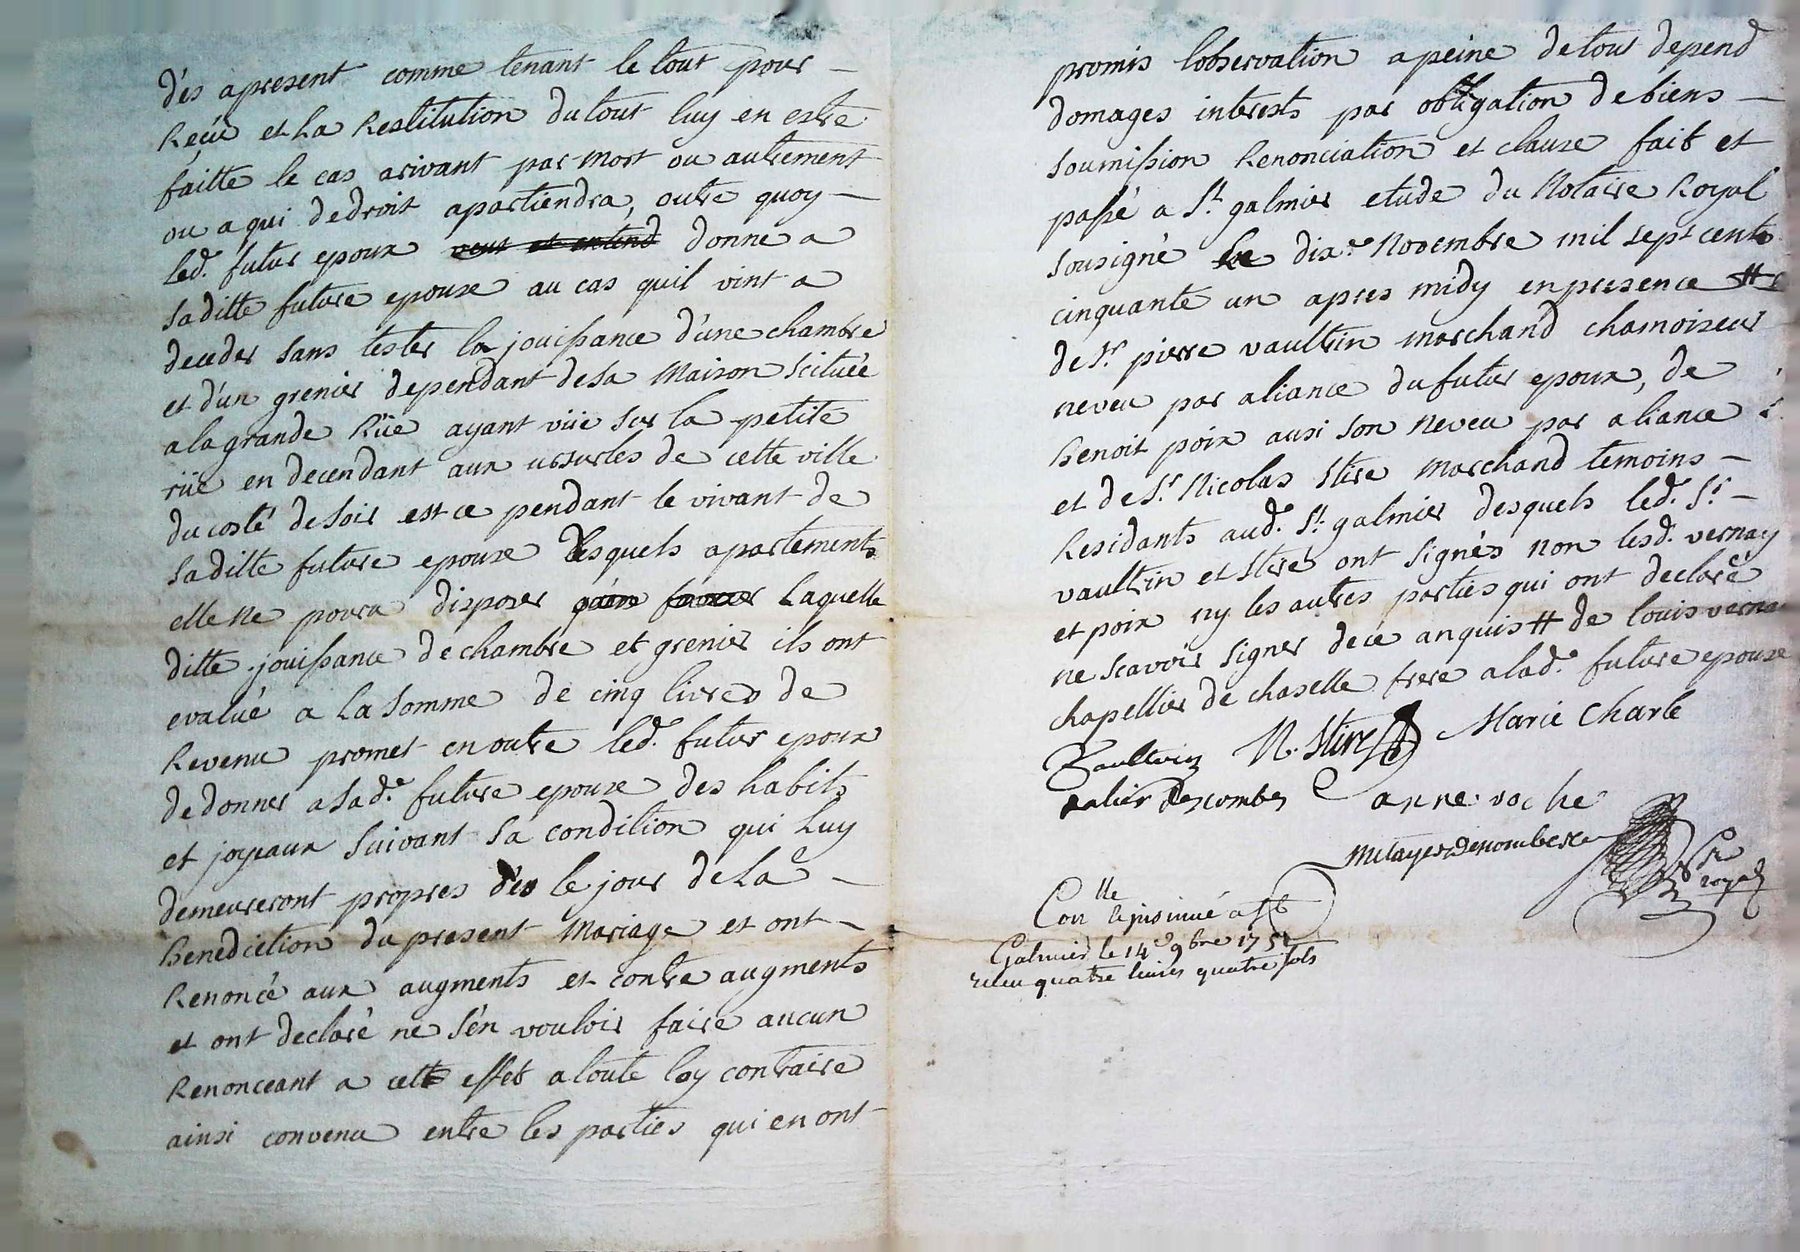 dés apresent comme tenant le tout pour
Reçü et La Restitution du tout luy en estre
faitte le cas arivant par mort ou autrement
ou a qui de droit apartiendra, outre quoy
led. futur epoux veut et entend donne a
sa ditte future epouse au cas quil vint a
deceder sans tester la jouissance d'une chambre
et d'un grenier dependant de sa Maison scituée
a la grande Rüe ayant vüe sur la petite
rüe en decendant aux ursules de cette ville
du costé de soir est ce pendant le vivant de
sa ditte future epouse desquels apartements
elle ne poura disposer Laquelle
ditte jouissance de chambre et grenier ils ont
evalué a La somme de cinq livres de
Revenu promet en outre led. futur epoux
de donner a sad.e future epouse des habits
et joyeaux suivant sa condition qui Luy
demeureront propres dés le jour de La
Benediction du present Mariage et ont
Renoncé aux augments et contre augments
et ont declaré ne s'en vouloir faire aucun
Renonceant a cett effet a toute loy contraire
ainsi convenu entre les parties qui en ont
promis lobservation a peine de tous depend
domages interests par obligation de biens
soumission Renonciation et clause fait et
passé a St. galmier etude du Notaire Royal
sousigné Le dix.e Novembre mil sept cents
cinquante un apres midy en presence #
de Sr. pierre vaultrin marchand chamoiseur
neveu par aliance du futur epoux, de
Benoit poix ausi son Neveu par aliance
et de Sr. Nicolas Stire Marchand temoins
Residants aud. St. galmier desquels led. Sr.
vaultrin et stire ont signés non lesd. vernay
et poix ny les autres parties qui ont declaré
ne scavoir signer de ce anquis # de louis verna
chapellier de chaselle frere a lad.e future epouse
Vaultrin N. Stire Marie Charle
Descombes anne roche
Conlle & insinué a St
Galmier le 14e 9bre 1751
reçu quatre livres quatre sols